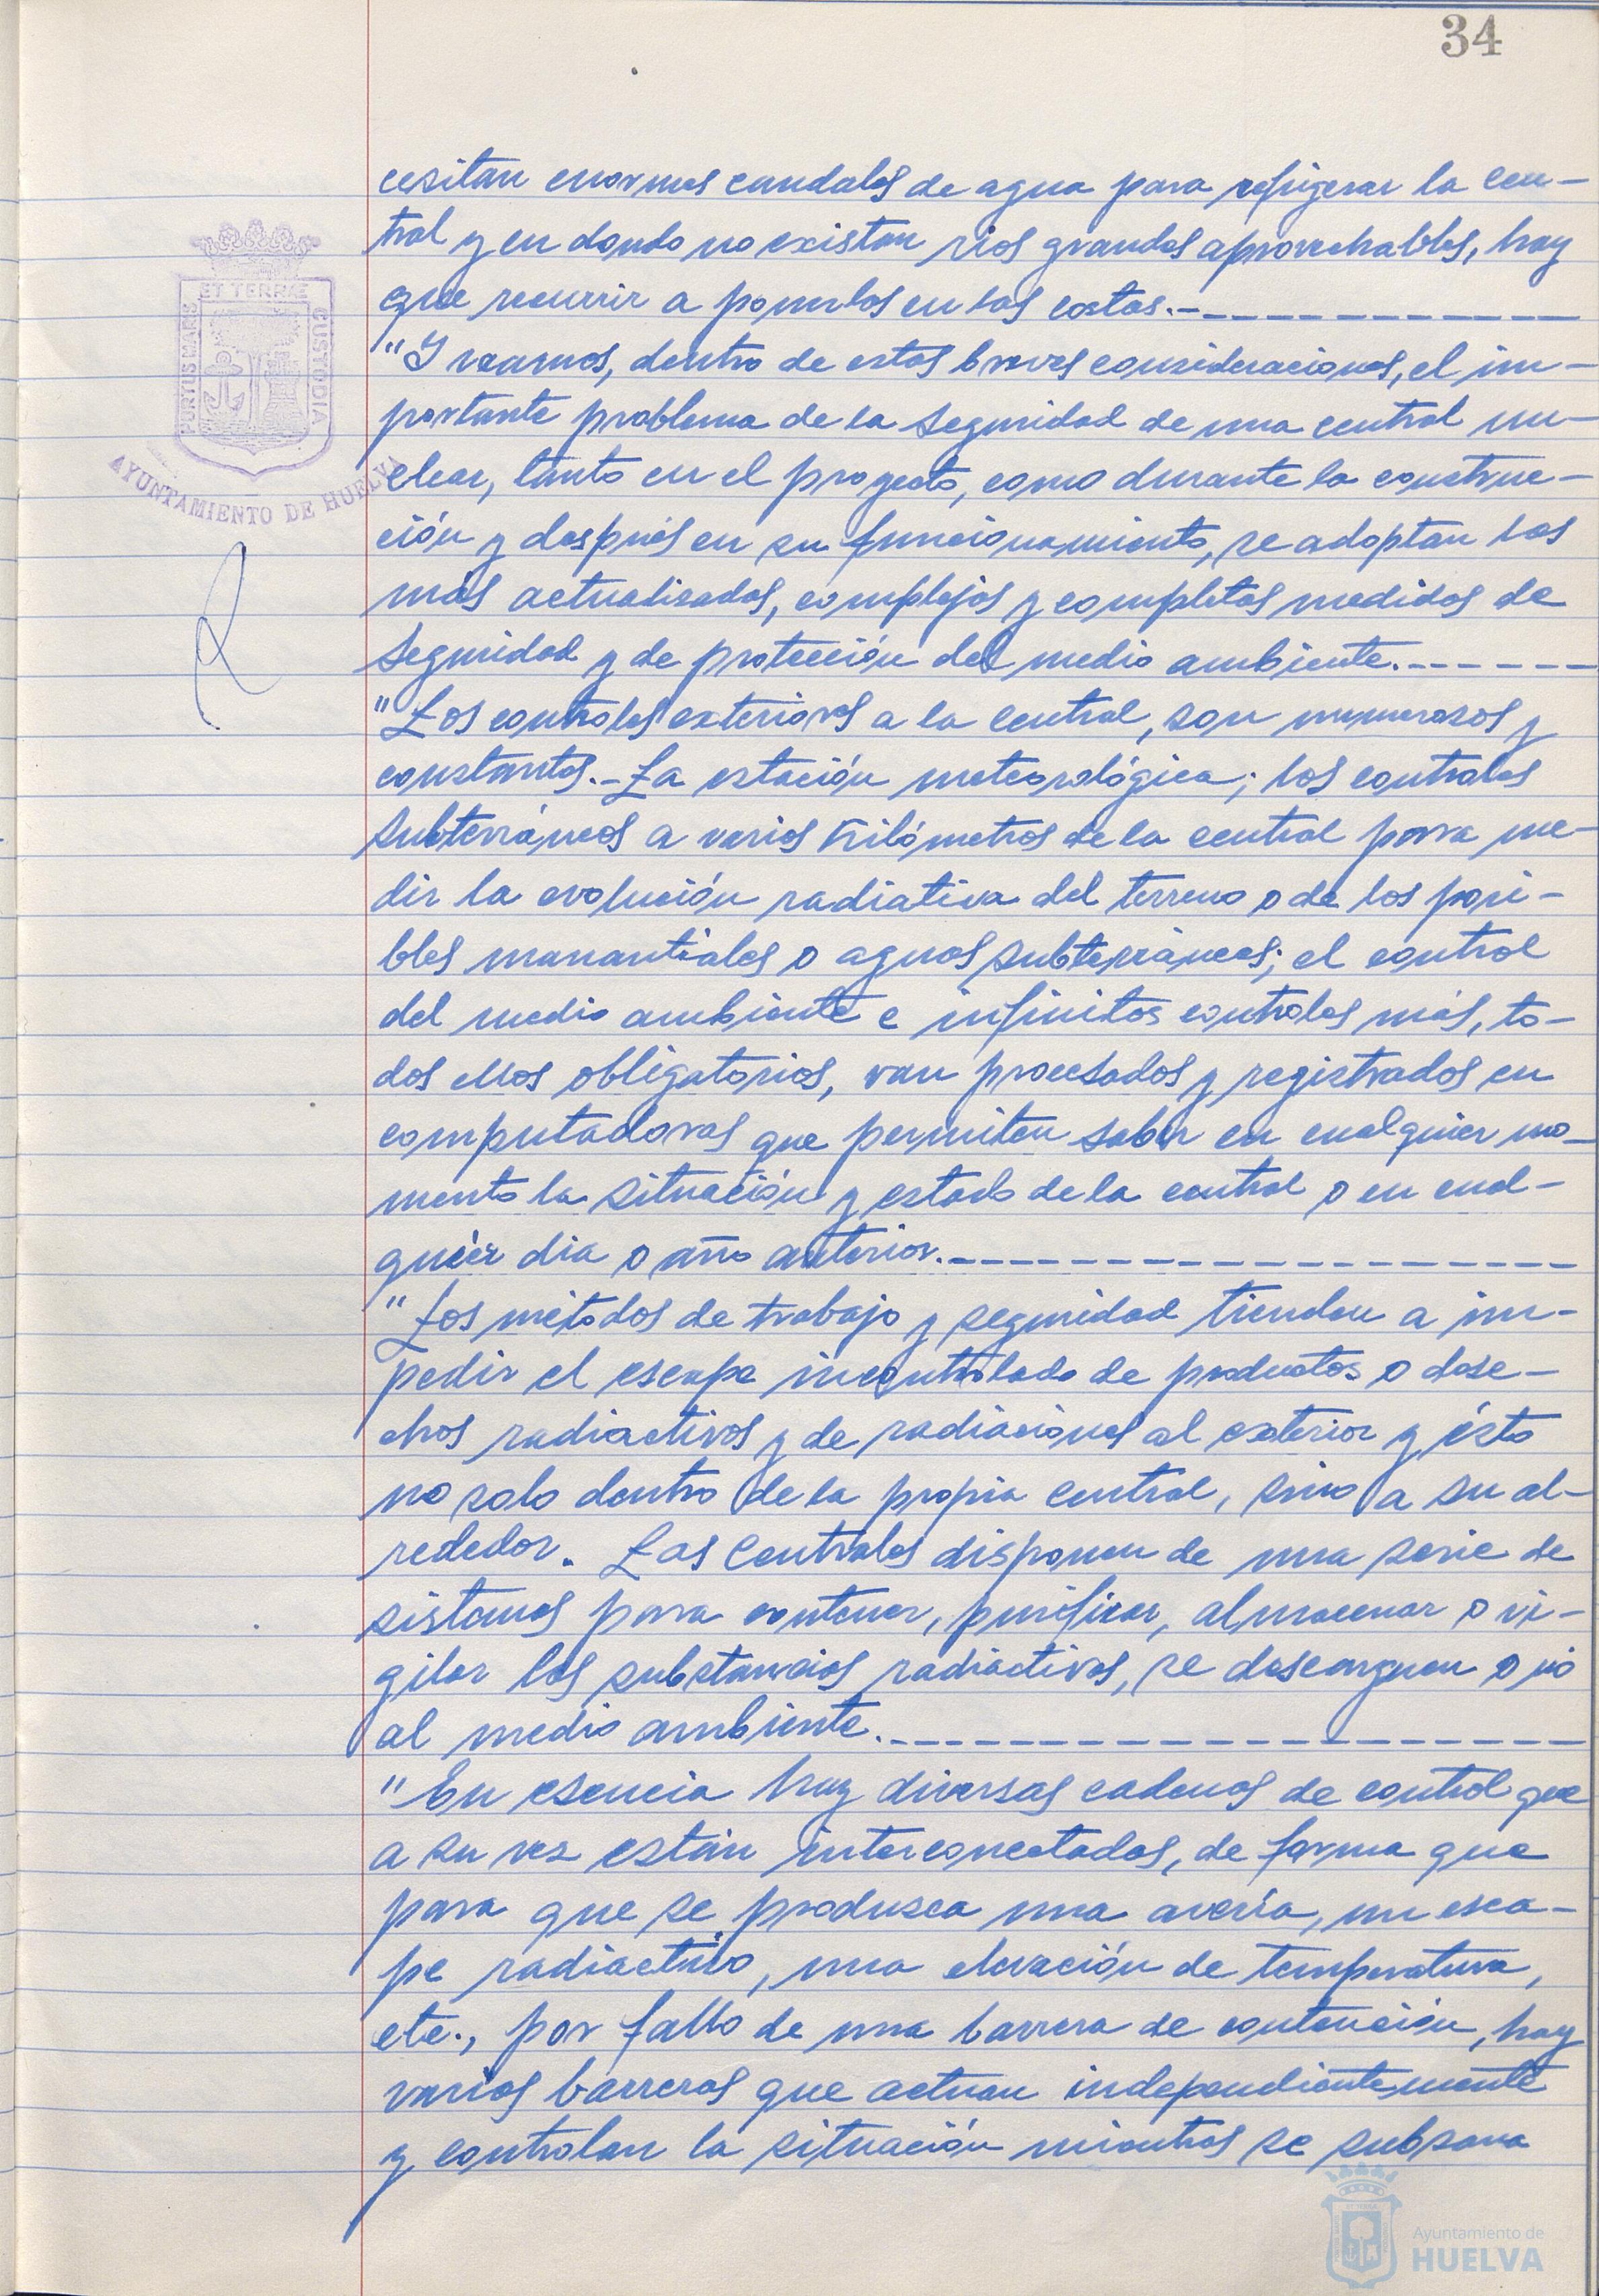 34
PORTUS MARIS ET TERRÆ CUSTODIA
AYUNTAMIENTO DE HUELVA
cesitan enormes caudales de agua para refrigerar la cen-
tral y en donde no existan rios grandes aprovechables, hay
que recurrir a ponerlas en las costas.-
"Y veamos, dentro de estas breves consideraciones, el im-
portante problema de la seguridad de una central nu-
clear, tanto en el proyecto, como durante la construc-
ción y después en su funcionamiento, se adoptan las
más actualizadas, complejas y completas medidas de
seguridad y de protección del medio ambiente.
"Los controles exteriores a la central, son numerosos y
constantes.- La estación meteorológica; los controles
subterráneos a varios kilómetros de la central para me-
dir la evolución radiativa del terreno o de los posi-
bles manantiales o aguas subterráneas; el control
del medio ambiente e infinitos controles más, to-
dos ellos obligatorios, van procesados y registrados en
computadoras que permiten saber en cualquier mo-
mento la situación y estado de la central o en cual-
quier dia o año anterior.
"Los métodos de trabajo y seguridad tienden a im-
pedir el escape incontrolado de productos o dese-
chos radiactivos y de radiaciones al exterior y ésto
no solo dentro de la propia central, sino a su al-
rededor. Las Centrales disponen de una serie de
sistemas para contener, purificar, almacenar o vi-
gilar las substancias radiactivas, se descarguen o no
al medio ambiente.
"En esencia hay diversas cadenas de control que
a su vez están interconectadas, de forma que
para que se produzca una avería, un esca-
pe radiactivo, una elevación de temperatura,
etc., por fallo de una barrera de contención, hay
varias barreras que actuan independientemente
y controlan la situación mientras se subsana
Ayuntamiento de
HUELVA